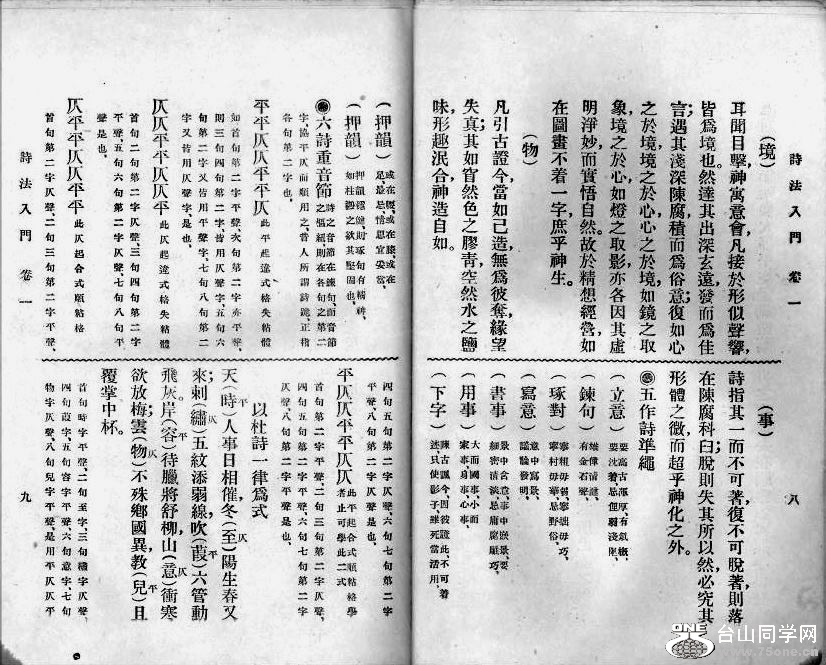 詩法入門 卷一 八
(境)
耳聞目擊,神寓意會,凡接於形似聲響,
皆爲境也。然達其出深玄遠,發而爲佳
言;遇其淺深陳腐,積而爲俗意。復如心
之於境,境之於心,心之於境,如鏡之取
象,境之於心,如燈之取影,亦各因其虛
明淨妙,而實悟自然。故於精想經營,如
在圖畫,不着一字,庶乎神生。
(物)
凡引古證今,當如已造,無爲彼奪,緣望
失眞,其如窅然色之膠青,空然水之鹽
味,形趣泯合,神造自如。
(事)
詩指其一而不可著,復不可脫。著則落
在陳腐科臼,脫則失其所以然,必究其
形體之微,而超乎神化之外。
五作詩準繩
(立意) 要高古渾厚,有氣概,
要沈着,忌俚弱淺陋。
(鍊句) 雄偉淸健,
有金石聲。
(琢對) 寧粗毋弱,寧拙毋巧,
寧村毋華,忌野俗。
(寫意) 意中寫景,
議論發明。
(書事) 景中含意,事中嵌景,要
細密淸淡,忌庸腐雕巧。
(用事) 大而國事,小而
家事,身事,心事。
(下字)
陳古諷今,因彼證此,不可着
迹,只使影子,雖死當活用。
(押韻) 或在腰,或在膝,或在
足,最忌情思宜妥當。
(押韻) 押韻穩健,則琢句有精神,
如柱礎之欲其堅固也。
六詩重音節 詩之音節在鍊句,而音節
之樞紐,則在各句之第二
字,協平仄而順用之,昔人所謂詩訣,正指
各句第二字也。
平平仄仄平平仄 此平起違式格失粘體
如首句第二字平聲,次句第二字亦平聲,
則三句四句第二字皆用仄聲字,五句六
句第二字又皆用平聲字,七句八句第二
字又皆用仄聲字,是也。
仄仄平平仄仄平 此仄起違式格失粘體
首句二句第二字仄聲,三句四句第二字
平聲,五句六句第二字仄聲,七句八句平
聲,是也。
仄平平仄仄平平 此仄起合式順粘格
首句第二字仄聲,二句三句第二字平聲,
四句五句第二字仄聲,六句七句第二字
平聲,八句第二字仄聲,是也。
平仄仄平平仄仄 此平起合式順粘格學
者止可學此二式
首句第二字平聲,二句三句第二字仄聲,
四句五句第二字平聲,六句七句第二字
仄聲,八句第二字平聲,是也。
以杜詩一律爲式
天(時)平人事日相催,冬(至)仄陽生春又
來;刺(繡)仄五紋添弱線,吹(葭)平六管動
飛灰。岸(容)平待臘將舒柳,山(意)仄衝寒
欲放梅;雲(物)仄不殊鄉國異,教(兒)平且
覆掌中杯。
首句時字平聲,二句至字,三句繡字仄聲,
四句葭字,五句容字平聲,六句意字七句
物字仄聲,八句兒字平聲,是用平仄仄平
詩法入門 卷一 九
ONE
台山同学网
www.75one.cn